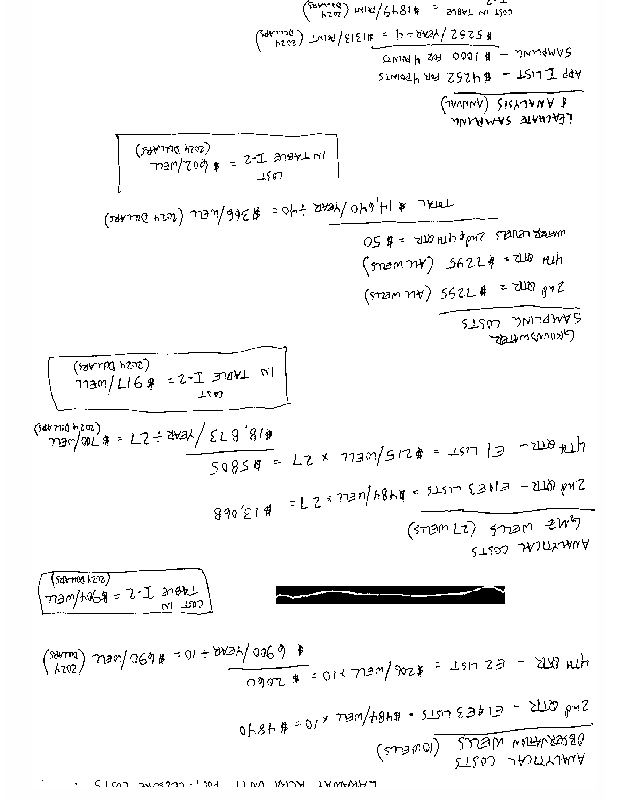 POST-CLOSURE COSTS
ANALYTICAL COSTS
OBSERVATION WELLS (10 WELLS)
2nd QTR - E1&E3 LISTS = $484/WELL x 10 = $4840
4TH QTR - E2 LIST = $206/WELL x 10 = $2060
$6900/YEAR ÷ 10 = $690/WELL (2024 DOLLARS)
COST IN
TABLE I-2 = $904/WELL
(2024 DOLLARS)
ANALYTICAL COSTS
GMZ WELLS (27 WELLS)
2nd QTR - E1&E3 LISTS = $484/WELL x 27 = $13,068
4TH QTR - E1 LIST = $215/WELL x 27 = $5805
$18,873/YEAR ÷ 27 = $700/WELL
(2024 DOLLARS)
COST
IN TABLE I-2 = $917/WELL
(2024 DOLLARS)
GROUNDWATER
SAMPLING COSTS
2nd QTR = $7295 (ALL WELLS)
4TH QTR = $7295 (ALL WELLS)
WATER LEVELS 2nd & 4TH QTR = $50
TOTAL $14,640/YEAR ÷ 40 = $366/WELL (2024 DOLLARS)
COST
IN TABLE I-2 = $602/WELL
(2024 DOLLARS)
LEACHATE SAMPLING
& ANALYSIS (ANNUAL)
APP I LIST - $4252 FOR 4 POINTS
SAMPLING - $1000 FOR 4 POINTS
$5252/YEAR ÷ 4 = $1313/POINT (2024 DOLLARS)
COST IN TABLE = $1849/POINT (2024
I-2